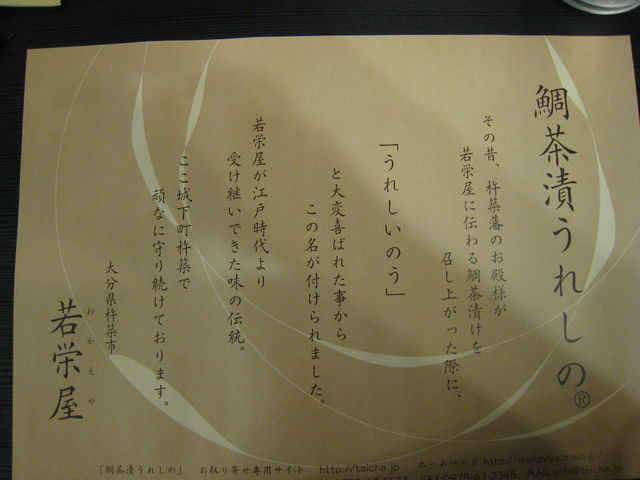 鯛茶漬うれしの®
その昔、杵築藩のお殿様が
若栄屋に伝わる鯛茶漬けを
召し上がった際に、
「うれしいのう」
と大変喜ばれた事から
この名が付けられました。
若栄屋が江戸時代より
受け継いできた味の伝統。
ここ城下町杵築で
頑なに守り続けております。
大分県杵築市
わかえや
若栄屋
「鯛茶漬うれしの」 お取り寄せ専用サイト http://taicha.jp
ホームページ http://wakaeya.main.jp/
FAX:0978-63-2345 MAIL:info@taicha.jp